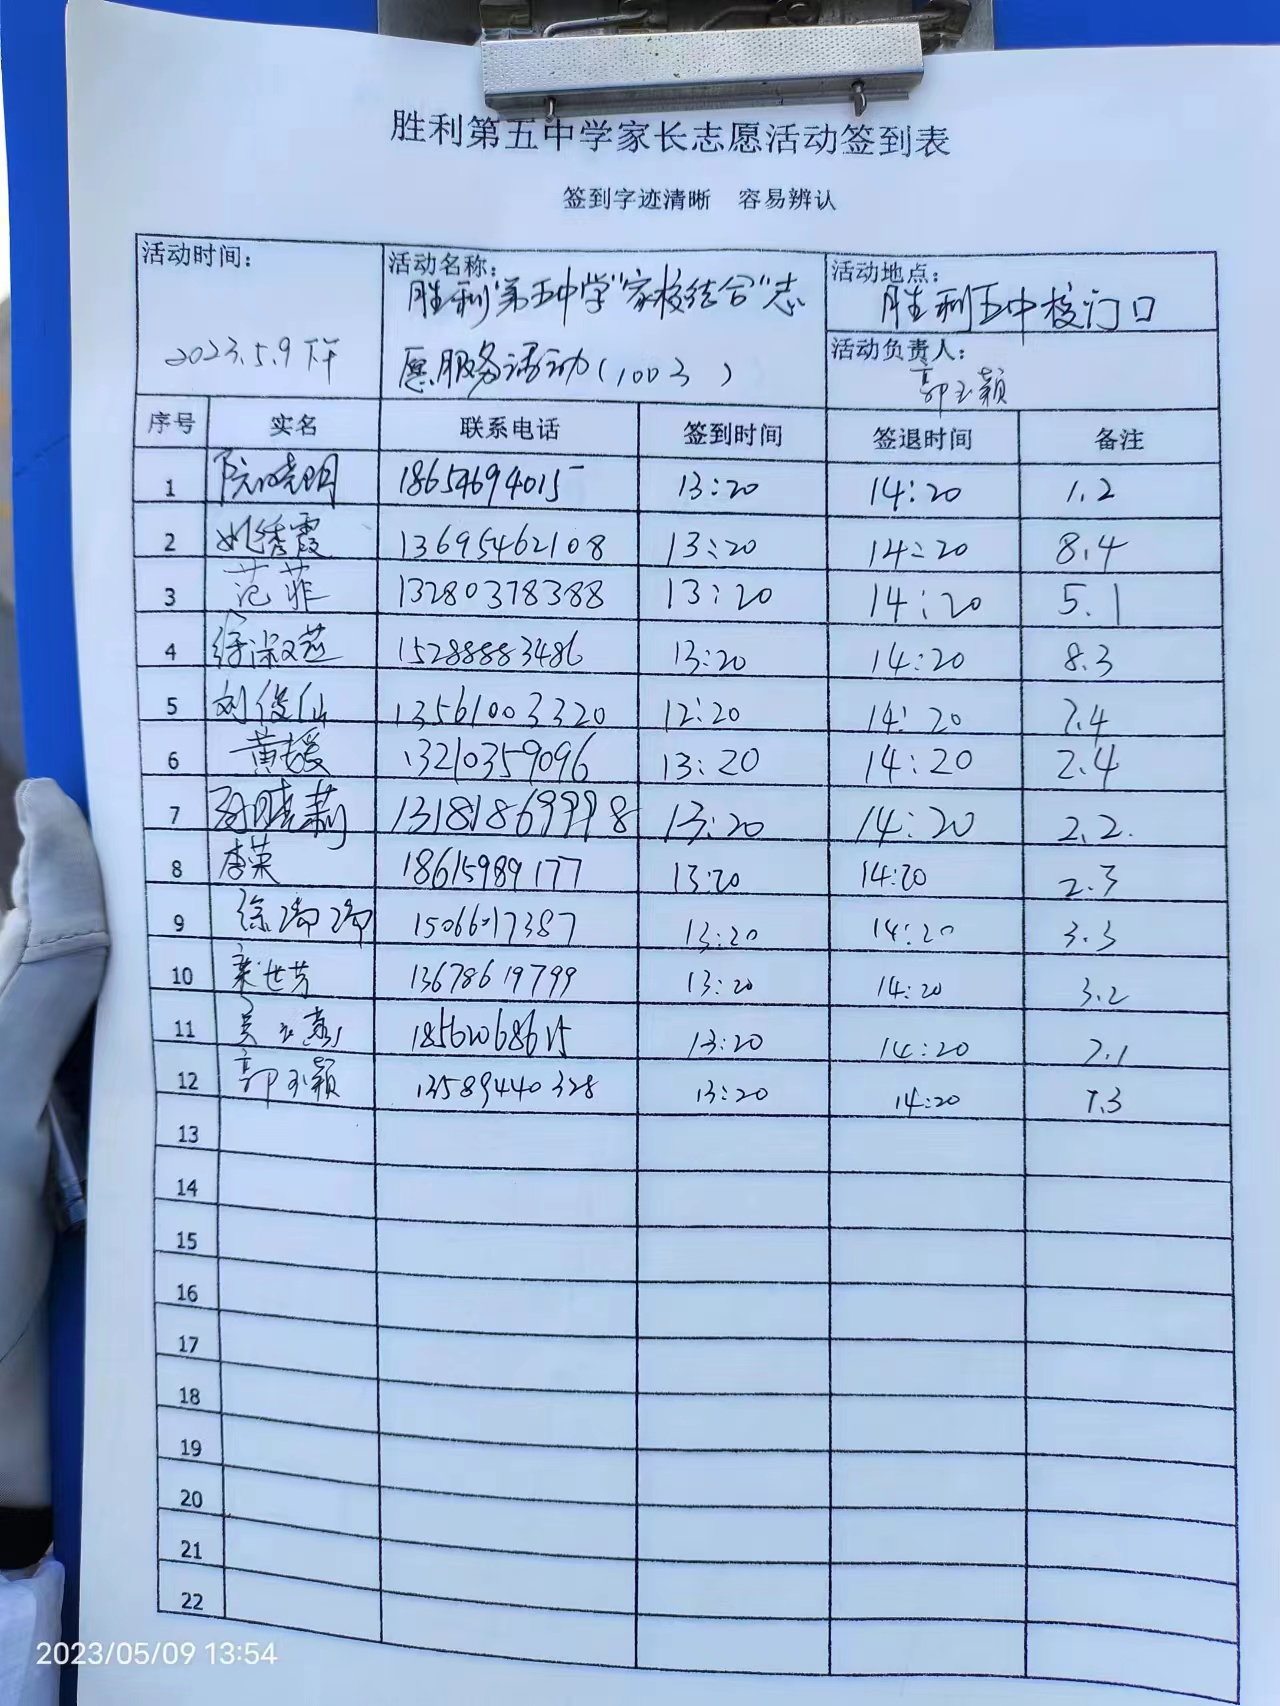 胜利第五中学家长志愿活动签到表
签到字迹清晰 容易辨认
活动时间:
2023.5.9下午
活动名称:
胜利第五中学"家校结合"志
愿服务活动(1003)
活动地点:
胜利五中校门口
活动负责人:
郭玉颖
序号 实名 联系电话 签到时间 签退时间 备注
1 阮晓明 18654694015 13:20 14:20 1.2
2 姚秀霞 13695462108 13:20 14:20 8.4
3 范菲 13280378388 13:20 14:20 5.1
4 徐淑燕 15288883486 13:20 14:20 8.3
5 刘俊仙 13561003320 12:20 14:20 7.4
6 黄媛 13210359096 13:20 14:20 2.4
7 孙晓莉 13181869998 13:20 14:20 2.2.
8 李荣 18615989177 13:20 14:20 2.3
9 徐瑞瑞 15066017387 13:20 14:20 3.3
10 栾世芳 13678619799 13:20 14:20 3.2
11 吴玉燕 18562068615 13:20 14:20 7.1
12 郭玉颖 13589440328 13:20 14:20 7.3
13
14
15
16
17
18
19
20
21
22
2023/05/09 13:54